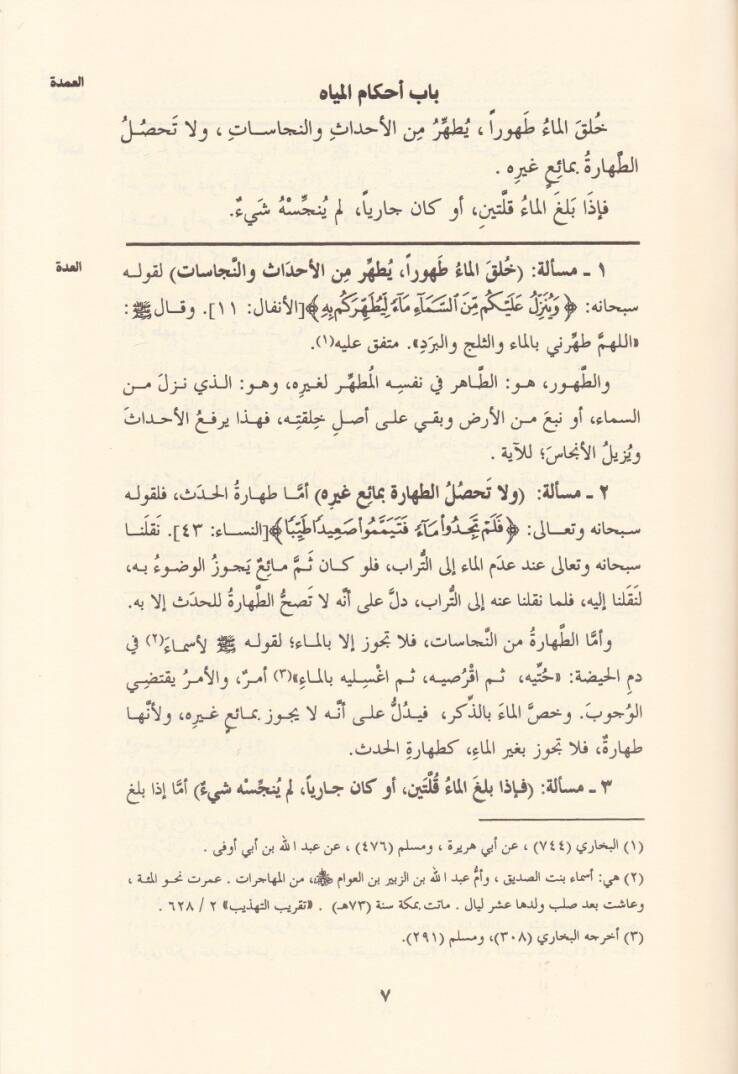 العمدة
باب أحكام المياه
خُلقَ الماءُ طَهوراً، يُطهِّرُ مِن الأحداثِ والنجاسـاتِ، ولا تَحصُلُ
الطَّهارةُ بمائعٍ غيرِه.
فإذَا بَلغَ الماءُ قلَّتينِ، أو كان جارياً، لم يُنجِّسْهُ شَيءٌ.
العدة
١ ـ مسألة: (خُلقَ الماءُ طَهوراً، يُطهِّر مِن الأحدَاث والنَّجاسات) لقولـه
سبحانه: ﴿وَيُنَزِّلُ عَلَيْكُم مِّنَ ٱلسَّمَآءِ مَآءً لِّيُطَهِّرَكُم بِهِ﴾[الأنفال: ١١]. وقـال ﷺ:
«اللهمَّ طهِّرني بالماء والثلج والبرَدِ». متفق عليه(١).
والطَّهور، هو: الطَّاهر في نفسِه المُطهِّر لغيرِه، وهو: الـذي نـزلَ مـن
السماء، أو نبعَ مـن الأرض وبقي علـى أصلِ خِلقتِه، فهـذا يرفـعُ الأحـداثَ
ويُزيلُ الأنجاسَ؛ للآية .
٢ ـ مسألة: (ولا تَحصُلُ الطهارة بمائعٍ غيرِه) أمَّا طهارةُ الحدَث، فلقولـه
سبحانه وتعـالى: ﴿فَلَمْ تَجِدُوا۟ مَآءً فَتَيَمَّمُوا۟ صَعِيدًا طَيِّبًا﴾[النساء: ٤٣]. نَقلَنـا
سبحانه وتعالى عند عدَم الماء إلى التُّراب، فلو كـان ثَـمَّ مائـعٌ يَجوزُ الوضوءُ بـه،
لنَقَلَنا إليه، فلما نقلنا عنه إلى التُّراب، دلَّ على أنَّه لا تَصحُّ الطَّهارةُ للحدَث إلا به.
وأمَّا الطَّهارةُ من النَّجاسات، فلا تجوز إلا بالمـاء؛ لقولـه ﷺ لأسماءَ(٢) في
دمِ الحيضة: «حُتِّيه، ثـم اقْرُصيـه، ثـم اغْسِليه بالماءِ»(٣) أمرٌ، والأمرُ يقتضـي
الوُجوبَ. وخصَّ الماءَ بالذِّكر، فيـدُلُّ علـى أنَّـه لا يجـوز بمـائعٍ غيرِه، ولأنَّهـا
طهارةٌ، فلا تجوز بغير الماءِ، كطهارةِ الحدث.
٣ ـ مسألة: (فـإذا بلغَ الماءُ قُلَّتين، أو كان جـارياً، لم يُنجِّسْه شيءٌ) أمَّا إذا بلغ
(١) البخاري (٧٤٤) ، عن أبي هريرة ، ومسلم (٤٧٦) ، عن عبد الله بن أبي أوفى .
(٢) هي: أسماء بنت الصديق ، وأمُّ عبد الله بن الزبير بن العوام ، من المهاجرات . عمرت نحـو المئـة ،
وعاشت بعد صلب ولدها عشر ليال . ماتت بمكة سنة (٧٣هـ) . «تقريب التهذيب» ٢ / ٦٢٨ .
(٣) أخرجه البخاري (٣٠٨)، ومسلم (٢٩١).
٧